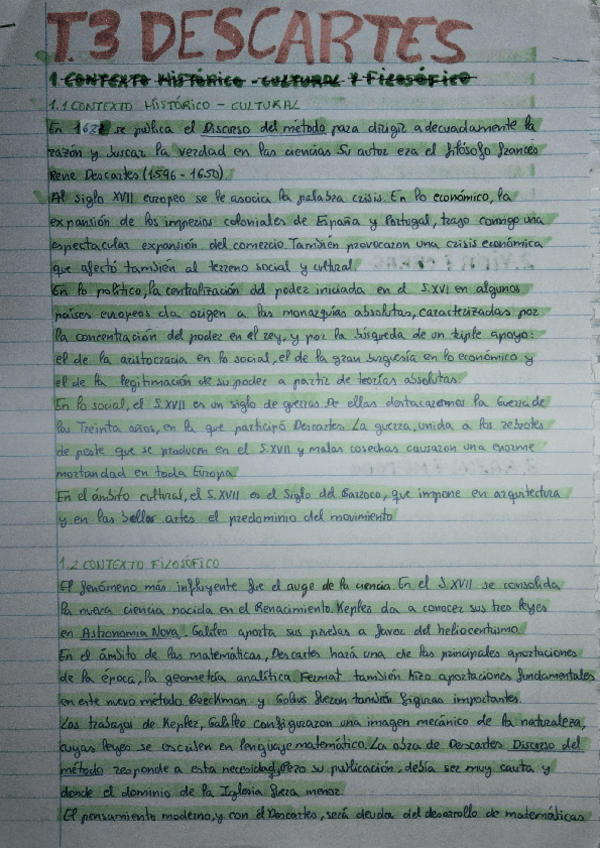 T.3 DESCARTES
1. CONTEXTO HISTÓRICO - CULTURAL Y FILOSÓFICO
1.1 CONTEXTO HISTÓRICO - CULTURAL
En 1637 se publica el Discurso del método para dirigir adecuadamente la
razón y buscar la verdad en las ciencias Su autor era el filósofo francés
René Descartes (1596 - 1650).
Al siglo XVII europeo se le asocia la palabra crisis. En lo económico, la
expansión de los imperios coloniales de España y Portugal, trajo consigo una
espectacular expansión del comercio. También provocaron una crisis económica
que afectó también al terreno social y cultural.
En lo político, la centralización del poder iniciada en el S.XVI en algunos
países europeos da origen a las monarquías absolutas, caracterizadas por
la concentración del poder en el rey, y por la búsqueda de un triple apoyo:
el de la aristocracia en lo social, el de la gran burguesía en lo económico y
el de la legitimación de su poder a partir de teorías absolutas.
En lo social, el S.XVII es un siglo de guerras. De ellas destacaremos la Guerra de
los Treinta años, en la que participó Descartes. La guerra, unida a los rebotes
de peste que se producen en el S.XVII y malas cosechas causaron una enorme
mortandad en toda Europa
En el ámbito cultural, el S.XVII es el Siglo del Barroco, que impone en arquitectura
y en las bellas artes el predominio del movimiento
1.2 CONTEXTO FILOSÓFICO
El fenómeno más influyente fue el auge de la ciencia. En el S.XVII se consolida
la nueva ciencia nacida en el Renacimiento. Kepler da a conocer sus tres leyes
en Astronomia Nova. Galileo aporta sus pruebas a favor del heliocentrismo.
En el ámbito de las matemáticas, Descartes hará una de las principales aportaciones
de la época, la geometría analítica. Fermat también hizo aportaciones fundamentales
en este nuevo método. Beeckman y Golius fueron también figuras importantes.
Los trabajos de Kepler, Galileo configuraron una imagen mecánica de la naturaleza,
cuyas leyes se esculpen en lenguaje matemático. La obra de Descartes Discurso del
método responde a esta necesidad, pero su publicación, debía ser muy cauta y
donde el dominio de la Iglesia fuera menor.
El pensamiento moderno, y con él Descartes, será deudor del desarrollo de matemáticas